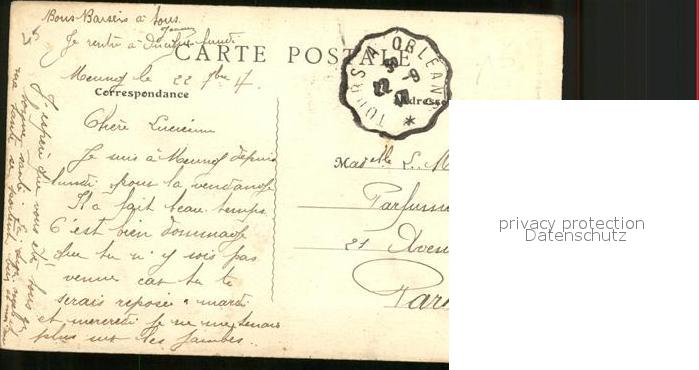 Bons Baisers à tous
Je rentre à lundi
CARTE POSTALE
Meung le 22 7bre 17
Correspondance
Adresse
TOURS A ORLEANS
22 - 9
17
Chère Lucienne
Je suis à Meung depuis
lundi pour la vendange
Il a fait beau temps
C'est bien dommage
que tu n'y sois pas
venue car tu te
serais reposée mardi
et mercredi je ne me tenais
plus sur les jambes.
J'espère que vous êtes tous
Madelle L. M
Parfume
21 Aven
Pari
privacy protection
Datenschutz